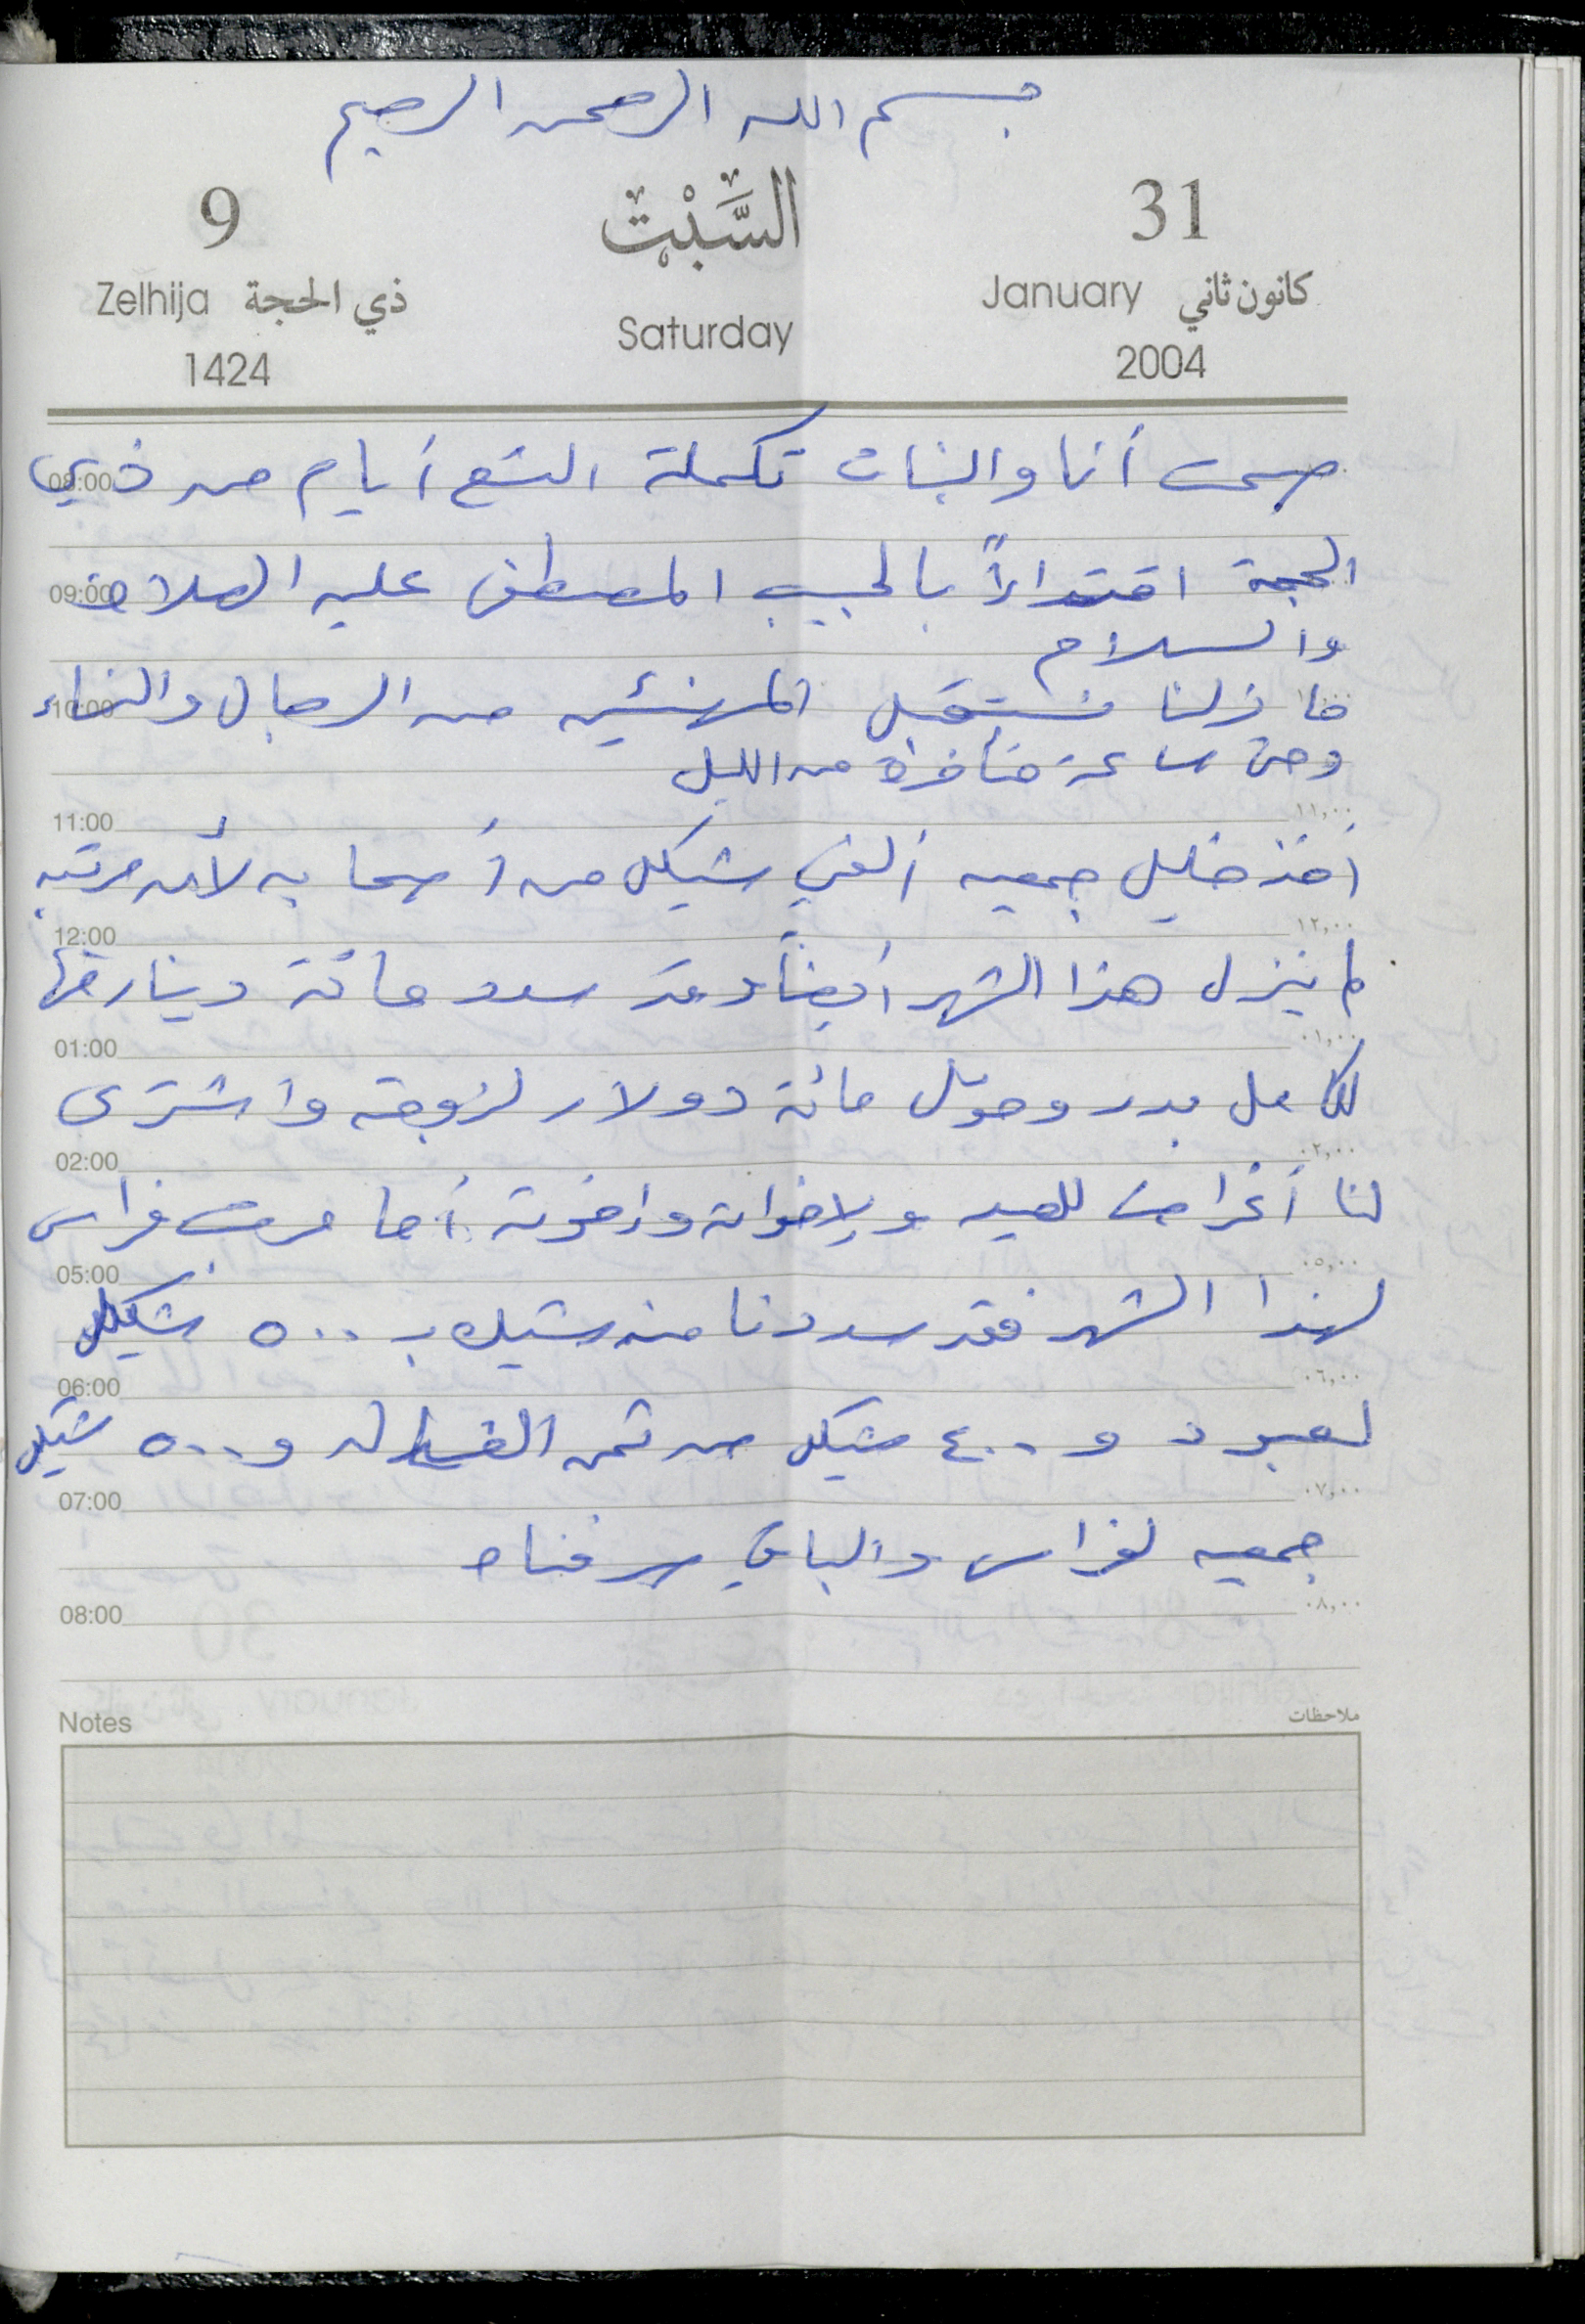 بسم الله الرحمن الرحيم
9 السَّبْت 31
Zelhija ذي الحجة Saturday January كانون ثاني
1424 2004
صمت أنا والبنات تكملة التسع أيام من ذي
08:00
الحجة اقتداءاً بالحبيب المصطفى عليه الصلاة
09:00
والسلام
ما زلنا نستقبل المهنئين من الرجال والنساء
10:00 ١٠,٠٠
وحتى ساعة متأخرة من الليل
11:00 ١١,٠٠
أخذ خليل جمعيه ألفي شيكل من أصحابه لأن مرتبه
12:00 ١٢,٠٠
لم ينزل هذا الشهر أيضاً وقد سدد مائة دينار منها
01:00 ٠١,٠٠
لكامل بدر وحوّل مائة دولار لزوجته واشترى
02:00 ٠٢,٠٠
لنا أغراض للعيد ولإخوانه وإخوته أما مرتب فراس
05:00 ٠٥,٠٠
لهذا الشهر فقد سددنا منه شيك بـ ٥٠٠ شيكل
06:00 ٠٦,٠٠
لعبود و ٤٠٠ شيكل من ثمن الغسالة و ٥٠٠ شيكل
07:00 ٠٧,٠٠
جمعيه لفراس والباقي صرفناه
08:00 ٠٨,٠٠
Notes ملاحظات